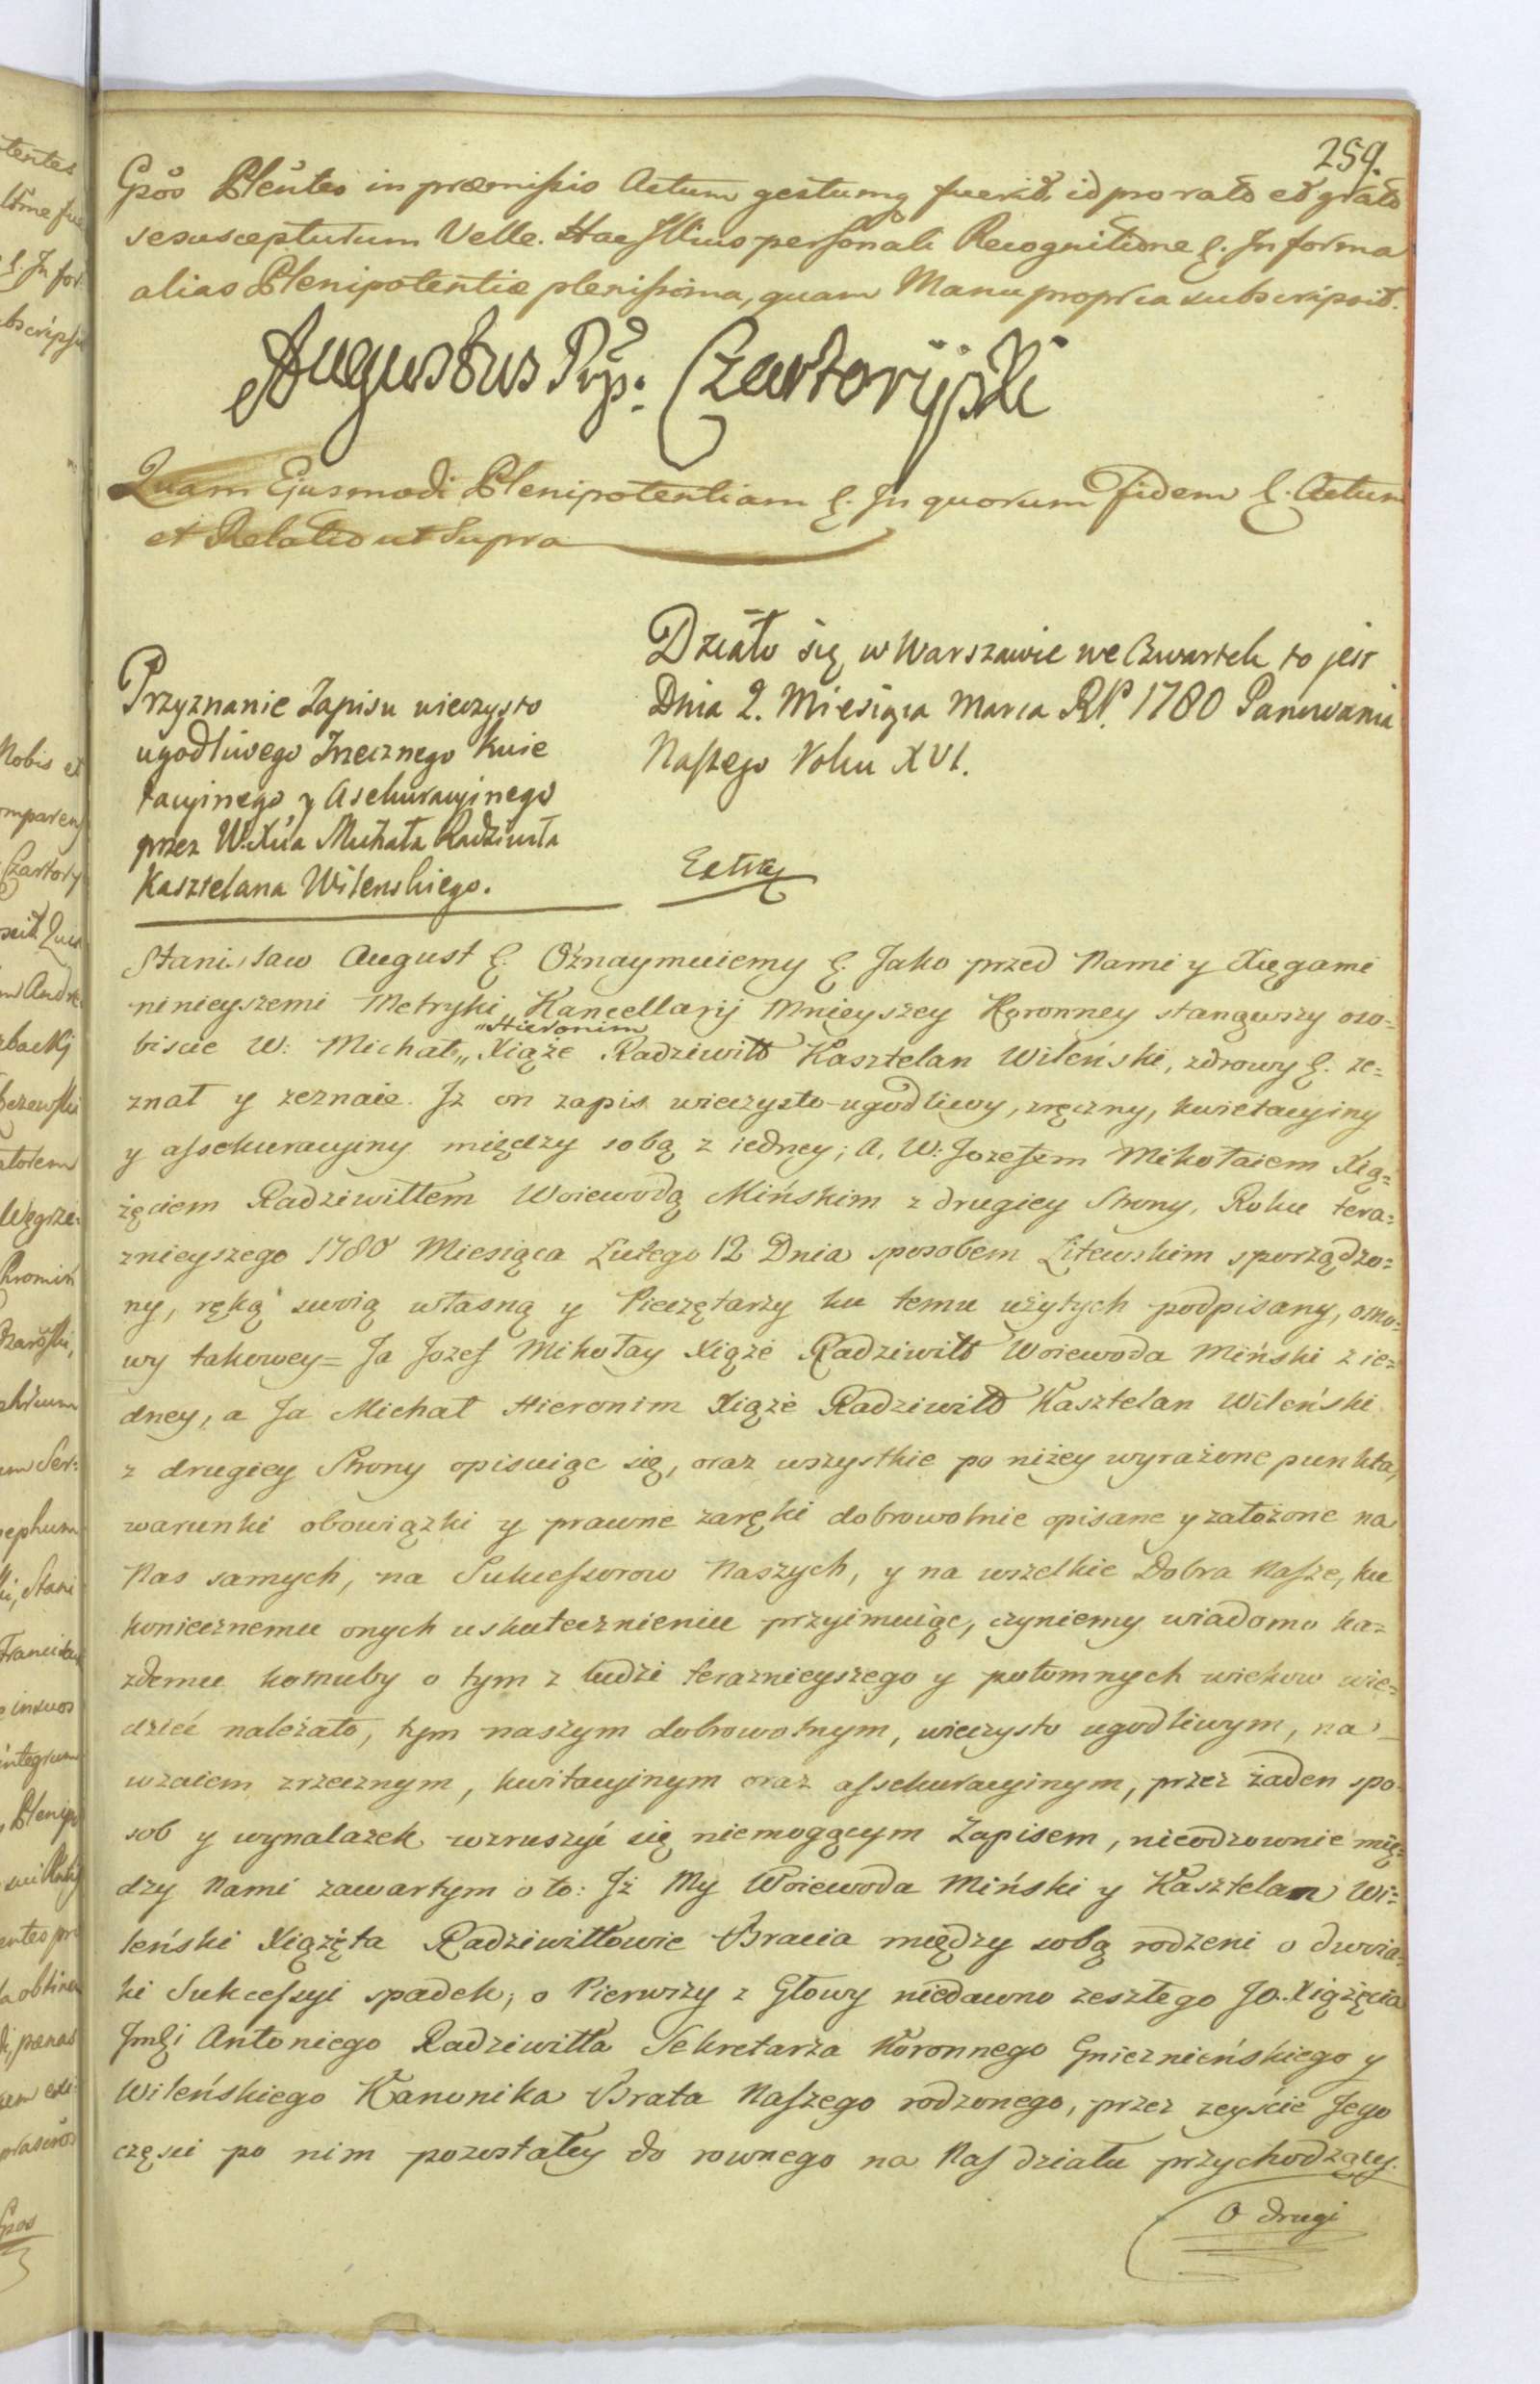 259.
Gnos Plentes in præmissis Actum gestumq fuerit, id pro rato et grato
se suscepturum Velle. Hac personali Recognitione &. In forma
alias Plenipotentiæ plenissima, quam Manu propria subscripsit.
Augustus Czartoryski
Quam Ejusmodi Plenipotentiam &. In quorum Fidem &. Actum
et Relatio ut Supra
Działo się w Warszawie we Czwartek to jest
Dnia 2. Miesiąca Marca RP. 1780 Panowania
Naszego Roku XVI.
Przyznanie Zapisu wieczysto
ugodliwego Zrzecznego Kwie
tacyinego y Asekuracyinego
przez W. Xcia Michała Radziwiła
Kasztelana Wilenskiego.
Stanisław August &. Oznaymuiemy &. Jako przed Nami y Xięgami
ninieyszemi Metryki Kancellaryi Mnieyszey Koronney stanąwszy oso-
biscie W: Michał „Hieronim„ Xiąże Radziwiłł Kasztelan Wileński, zdrowy &. ze=
znał y zeznaie. Iż on zapis wieczysto-ugodliwy, zręczny, kwietacyiny
y assekuracyiny między sobą z iedney; A, W: Jozefem Mikołaiem Xią=
żęciem Radziwiłłem Woiewodą Mińskim z drugiey Strony, Roku tera=
znieyszego 1780 Miesiąca Lutego 12 Dnia sposobem Litewskim sporządzo=
ny, ręką swoią własną y Pieczętarzy ku temu użytych podpisany, osno=
wy takowey= Ja Jozef Mikołay Xiąże Radziwiłł Woiewoda Miński z ie=
dney, a Ja Michał Hieronim Xiąże Radziwiłł Kasztelan Wileński
z drugiey Strony opisuiąc się, oraz wszystkie po niżey wyrażone punkta,
warunki obowiązki y prawne zaręki dobrowolnie opisane y założone na
Nas samych, na Sukcessorow Naszych, y na wszelkie Dobra Nasze, ku
koniecznemu onych uskutecznieniu przyimuiąc, czyniemy wiadomo ka=
zdemu komuby o tym z ludzi teraznieyszego y potomnych wiekow wie=
dzieć należało, tym naszym dobrowolnym, wieczysto ugodliwym, na
wzaiem zrzecznym, kwitacyinym oraz assekuracyinym, przez żaden spo-
sob y wynalazek wzruszyć się niemogącym Zapisem, nieodzownie mię=
dzy Nami zawartym o to: Iż My Woiewoda Miński y Kasztelan Wi=
leński Xiążęta Radziwiłłowie Bracia między sobą rodzeni o dwoia=
ki Sukcessyi spadek; o Pierwszy z Głowy niedawno zeszłego JO. Xiążęcia
Jmci Antoniego Radziwiłła Sekretarza Koronnego Gniezninskiego y
Wileńskiego Kanonika Brata Naszego rodzonego, przez zeyście Jego
części po nim pozostałey do rownego na Nas działu przychodzącey.
O drugi